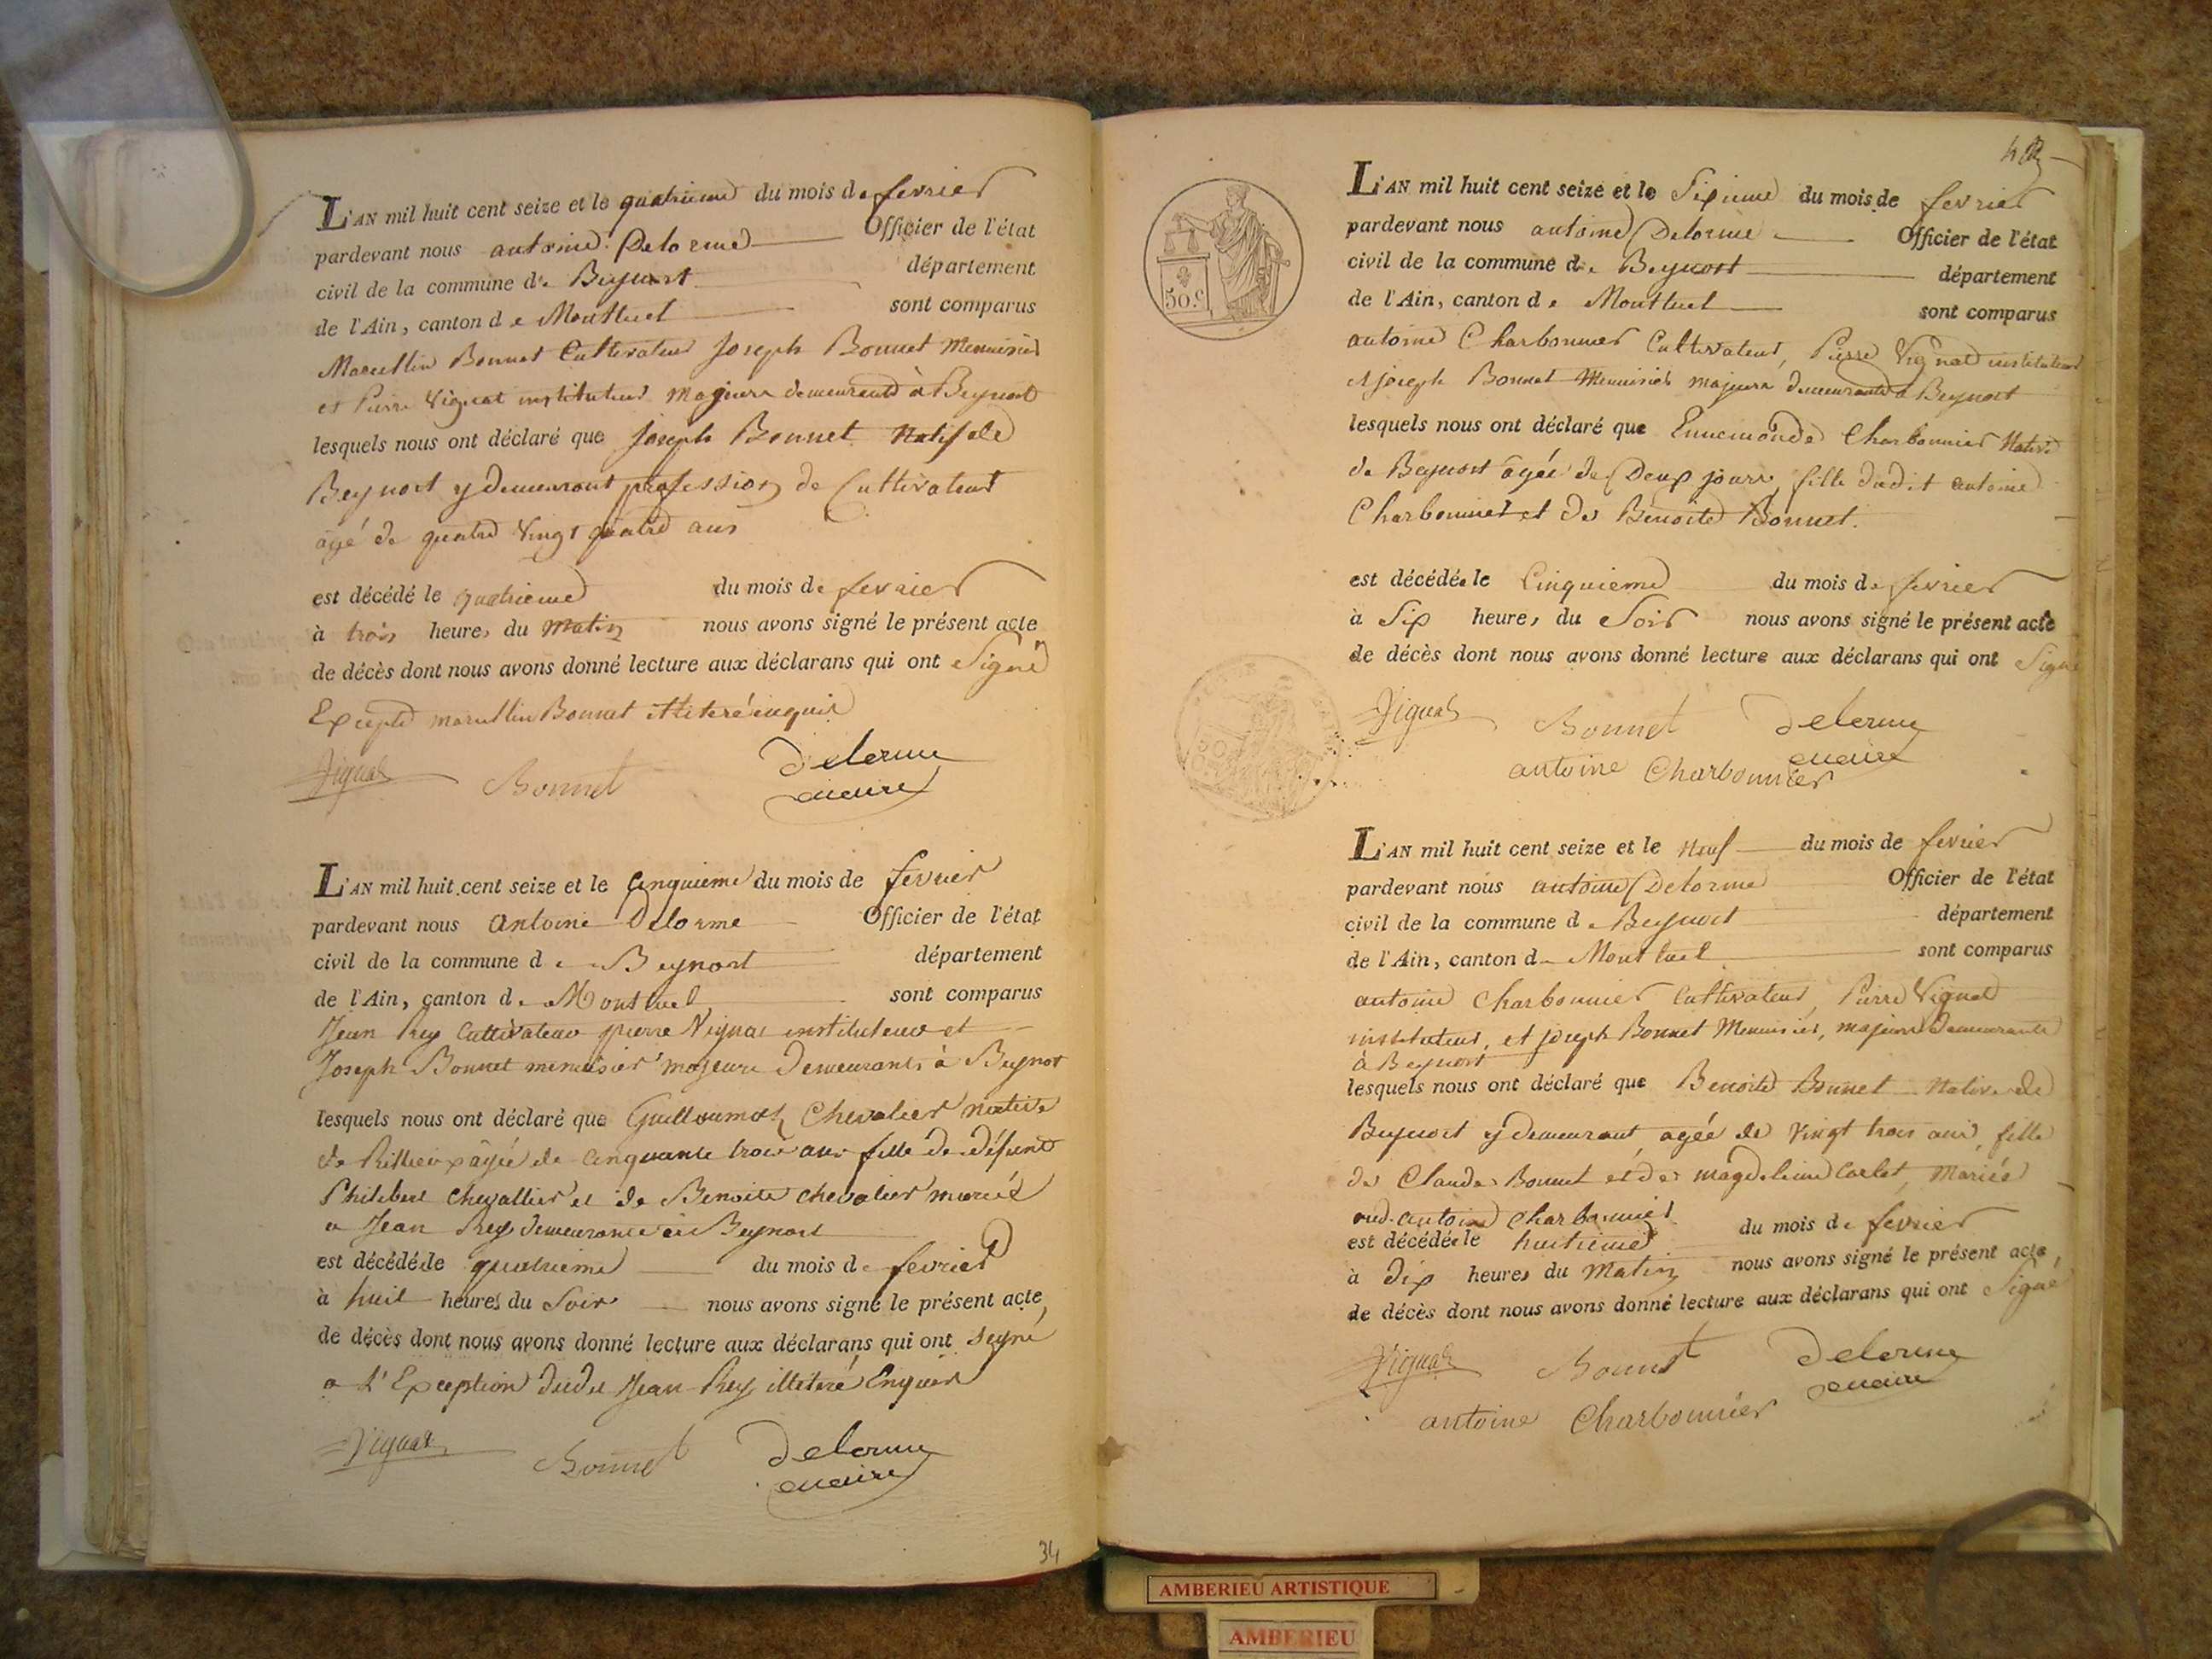 L'AN mil huit cent seize et le quatrieme du mois de fevrier
pardevant nous antoine Delorme Officier de l'état
civil de la commune de Beynost département
de l'Ain, canton de Montluel sont comparus
Marcellin Bonnet Cultivateur Joseph Bonnet Menuisier
et Pierre Vignat instituteur majeurs demeurants à Beynost
lesquels nous ont déclaré que Joseph Bonnet Natif de
Beynost y demeurant profession de Cultivateur
âgé de quatre Vingt quatre ans
est décédé le quatrieme du mois de fevrier
à trois heures du Matin nous avons signé le présent acte
de décès dont nous avons donné lecture aux déclarans qui ont Signé
Excepté marcellin Bonnet illiteré enquis
Vignat Bonnet Delorme
maire
L'AN mil huit cent seize et le cinquieme du mois de fevrier
pardevant nous Antoine Delorme Officier de l'état
civil de la commune de Beynost département
de l'Ain, canton de Montluel sont comparus
Jean Rey Cultivateur pierre Vignat instituteur et
Joseph Bonnet menuisier majeurs Demeurants à Beynost
lesquels nous ont déclaré que Chevalier native
de Rillieux âgée de cinquante trois ans fille de défunt
Philibert Chevallier et de Benoite chevalier mariée
a Jean Rey demeurante à Beynost
est décédée le quatrieme du mois de fevrier
à huit heures du Soir nous avons signé le présent acte
de décès dont nous avons donné lecture aux déclarans qui ont signé
a L'Exception dudit Jean Rey illiteré Enquis
Vignat Bonnet Delorme
maire
34
L'AN mil huit cent seize et le Sixieme du mois de fevrier
pardevant nous antoine Delorme Officier de l'état
civil de la commune de Beynost département
de l'Ain, canton de Montluel sont comparus
50 c
antoine Charbonnier Cultivateur, Pierre Vignat instituteur
et joseph Bonnet Menuisier majeurs demeurants a Beynost
lesquels nous ont déclaré que Ennemonde Charbonnier Native
de Beynost âgée de Deux jours, fille dudit antoine
Charbonnier et de Benoite Bonnet.
est décédée le Cinquieme du mois de fevrier
à Six heures du Soir nous avons signé le présent acte
de décès dont nous avons donné lecture aux déclarans qui ont Signé
Vignat Bonnet Delorme
maire
antoine Charbonnier
L'AN mil huit cent seize et le Neuf du mois de fevrier
pardevant nous antoine Delorme Officier de l'état
civil de la commune de Beynost département
de l'Ain, canton de Montluel sont comparus
antoine Charbonnier Cultivateur, Pierre Vignat
instituteur, et joseph Bonnet Menuisier, majeurs Demeurants
à Beynost
lesquels nous ont déclaré que Benoite Bonnet Native de
Beynost y demeurant, agée de Vingt trois ans, fille
de Claude Bonnet et de magdeleine Carlet, Mariée
aud. antoine Charbonnier
est décédée le huitieme du mois de fevrier
à Dix heures du Matin nous avons signé le présent acte
de décès dont nous avons donné lecture aux déclarans qui ont Signé
Vignat Bonnet Delorme
maire
antoine Charbonnier
AMBERIEU ARTISTIQUE
AMBERIEU